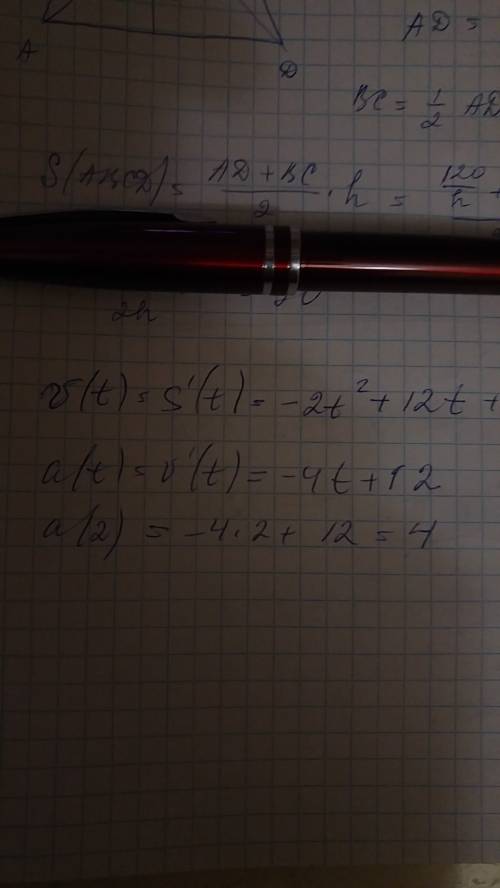 A
D
AD =
BC = 1/2 AD
S(ABCD) = (AD + BC)/2 · h = 120/h
2h
v(t) = S'(t) = -2t² + 12t +
a(t) = v'(t) = -4t + 12
a(2) = -4·2 + 12 = 4